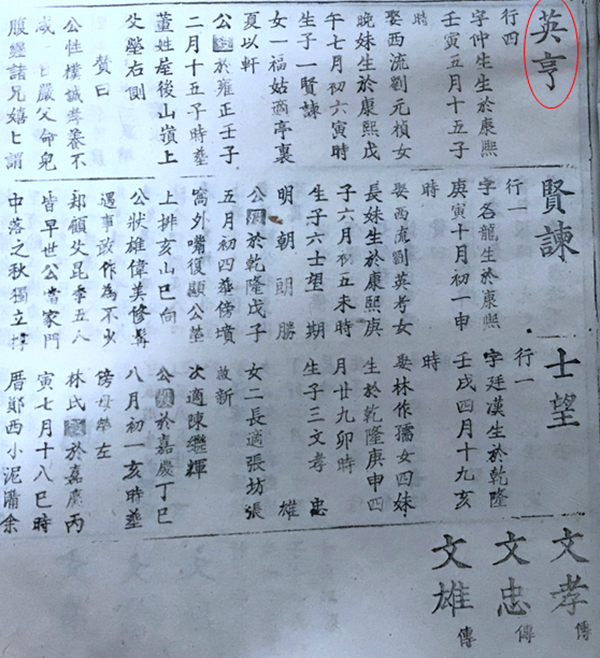 英亨
行四
字仲生生於康熙
壬寅五月十五子
時
娶西流劉元楨女
晚妹生於康熙戊
午七月初六寅時
生子一賢諫
女一福姑適亭裏
夏以軒
公於雍正壬子
二月十五午時葬
董姓屋後山嶺上
父塋右側
贊曰
公性樸誠孝養不
日嚴父命兒
腹經諸兄嬉匕謂
賢諫
行一
字名龍生於康熙
庚寅十月初一申
時
娶西流劉英考女
長妹生於康熙庚
子六月初五未時
生子六士望 期
明 朝 朗 勝
公於乾隆戊子
五月初四葬傍墳
窩外嘴復顯公塋
上排亥山巳向
公狀雄偉美修髯
遇事敢作為不少
却顧父昆季五人
皆早世公當家門
中落之秋獨立
士望
行一
字廷漢生於乾隆
壬戌四月十九亥
時
娶林作孺女四妹
生於乾隆庚申四
月廿九卯時
生子三文孝 忠
雄
女二長適張坊張
啟新
次適陳繼輝
公於嘉慶丁巳
八月初一亥時葬
傍母塋左
林氏於嘉慶丙
寅七月十八巳時
厝鄖西小泥溝余
文孝 傳
文忠 傳
文雄 傳